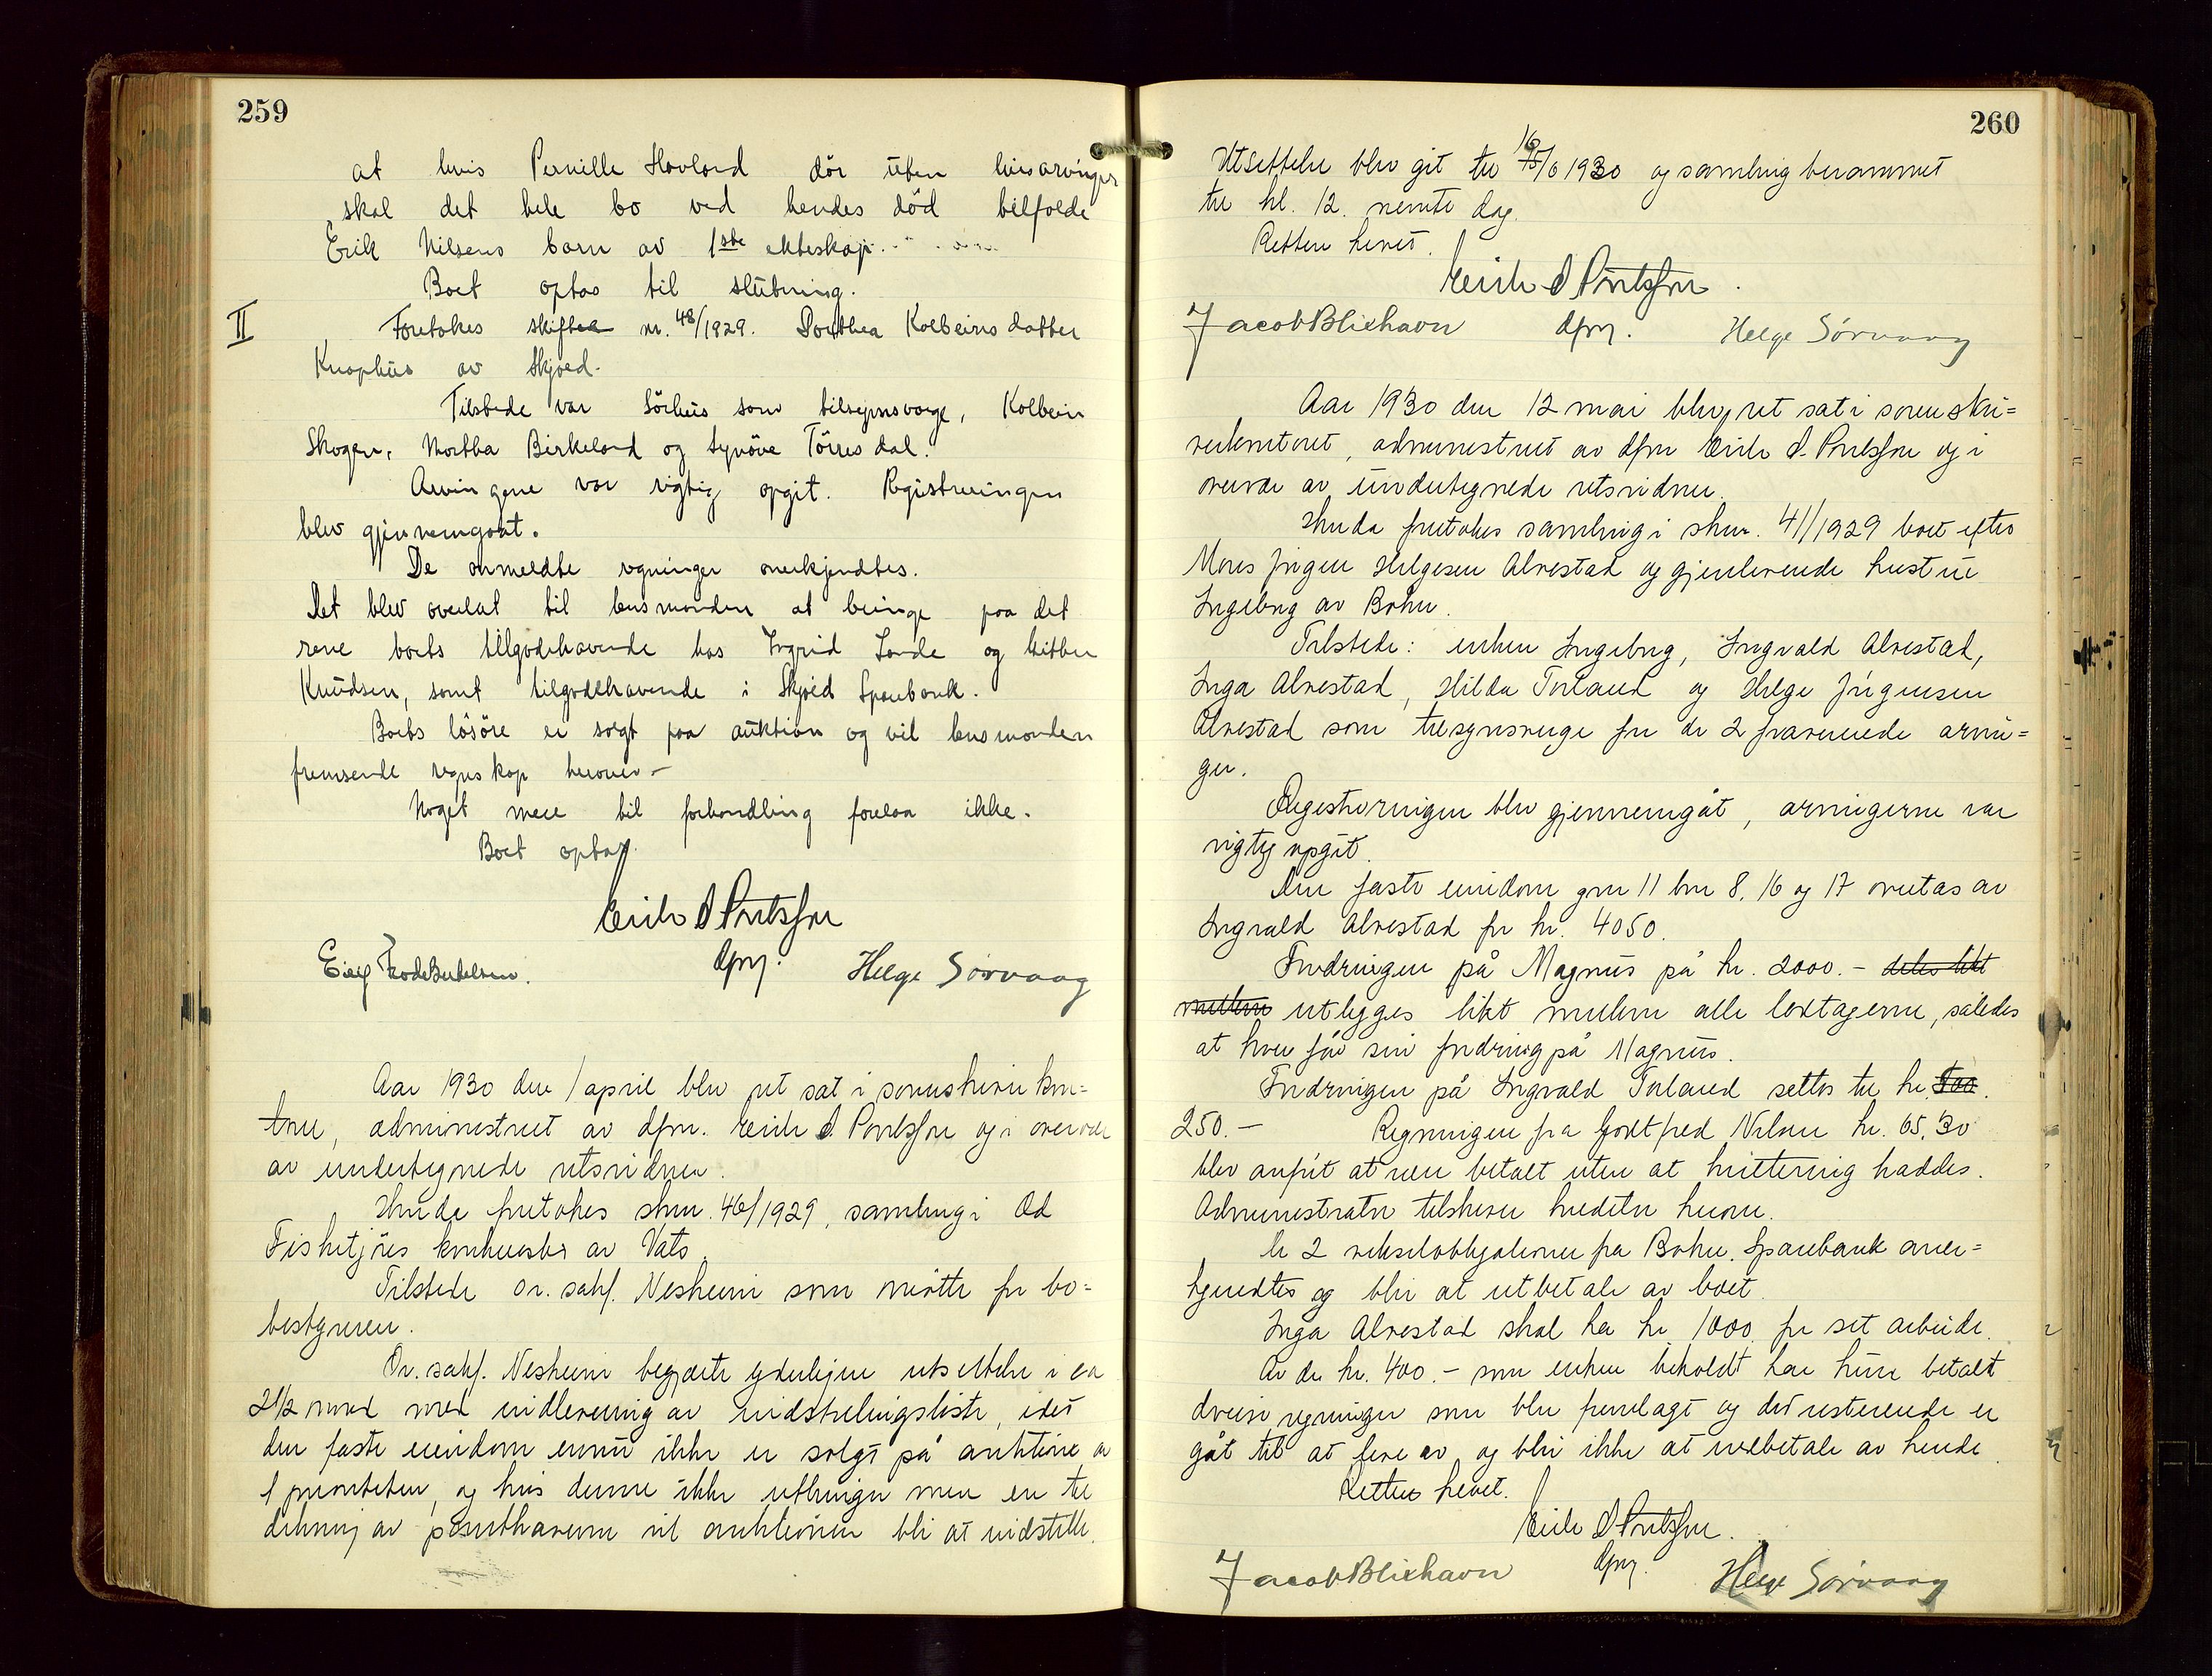 259
at hvis Pernille Hovland dör uten livsarvinger
skal det hele bo ved hendes död tilfalde
Erik Nilsens barn av 1ste ekteskap.
Boet optas til slutning.
II
Foretokes skifte nr. 48/1929. Dorthea Kolbeinsdatter
Knaphus av Skjold.
Tilstede var Sörhus som tilsynsverge, Kolbein
Skogen, Martha Birkeland og Synöve Törresdal.
Arvingene var rigtig opgit. Registreringen
blev gjennemgaat.
De anmeldte regninger anerkjendtes.
Det blev overlat til lensmanden at bringe paa det
rene boets tilgodehavende hos Ingrid Lande og
Knudsen, samt tilgodehavende i Skjold Sparebank.
Boets lösöre er solgt paa auktion og vil lensmanden
fremsende regnskap herover.-
Noget mere til forhandling forelaa ikke.
Boet optas.
Erich S Poulsson
dfm.
Helge Sörvaag
Aar 1930 den 1 april blev ret sat i sorenskriverkon-
toret, administrert av dfm. Erich S. Poulsson og i overvær
av undertegnede retsvidner.
Hvorda foretokes sknr. 46/1929, samling i Od
Fisketjöns konkursbo av Vats.
Tilstede o.r. sakf. Nesheim som mötte for bo-
bestyreren.
O.r. sakf. Nesheim begjærte yderligere utsettelse i ca
2 1/2 mned med indlevering av indstillingsliste, idet
den faste eiendom ennu ikke er solgt på auktion av
1 prioriteten, og hvis denne ikke utbringer mere en til
dekning av panthaverne vil auktionen bli at indstille.
260
Utsettelse blev git til 16/6 1930 og samling berammet
til kl. 12. nevnte dag.
Retten hevet.
Erich S Poulsson.
dfm.
Jacob Blixhavn
Helge Sörvaag
Aar 1930 den 12 mai blev ret sat i sorenskri=
verkontoret, administrert av dfm Erich S. Poulsson og i
overvær av undertegnede retsvidner.
Hvorda foretokes samling i sknr. 41/1929 boet efter
Mons Jörgen Helgesen Alvestad og gjenlevende hustru
Ingeborg av Bokn.
Tilstede: enken Ingeborg, Ingvald Alvestad,
Inga Alvestad, Hilda Torland og Helge Jörgensen
Alvestad som tilsynsverge for de 2 fraværende arvin=
ger.
Registreringen blev gjennemgåt, arvingerne var
rigtig opgit.
Den faste eiendom gnr 11 bnr 8, 16 og 17 overtas av
Ingvald Alvestad for kr. 4050.
Fordringen på Magnus på kr. 2000.- deles likt
mellem utlegges likt mellem alle lodtagerne, således
at hver får sin fordring på Magnus.
Fordringen på Ingvald Torland settes til kr.
250.- Regningen fra Godtfred Nilsen kr. 65,30
blev anfört at være betalt uten at kvittering haddes.
Administrator tilskriver kreditor herom.
De 2 vekselobligationer fra Bokn Sparebank aner=
kjendtes og blir at utbetale av boet.
Inga Alvestad skal ha kr 1000 for set arbeide.
Av de kr. 400.- som enken beholdt har hun betalt
diverse regninger som blev fremlagt og det resterende er
gåt til at leve av og blir ikke at indbetale av hende.
Retten hevet.
Erich S Poulsson.
dfm.
Jacob Blixhavn
Helge Sörvaag